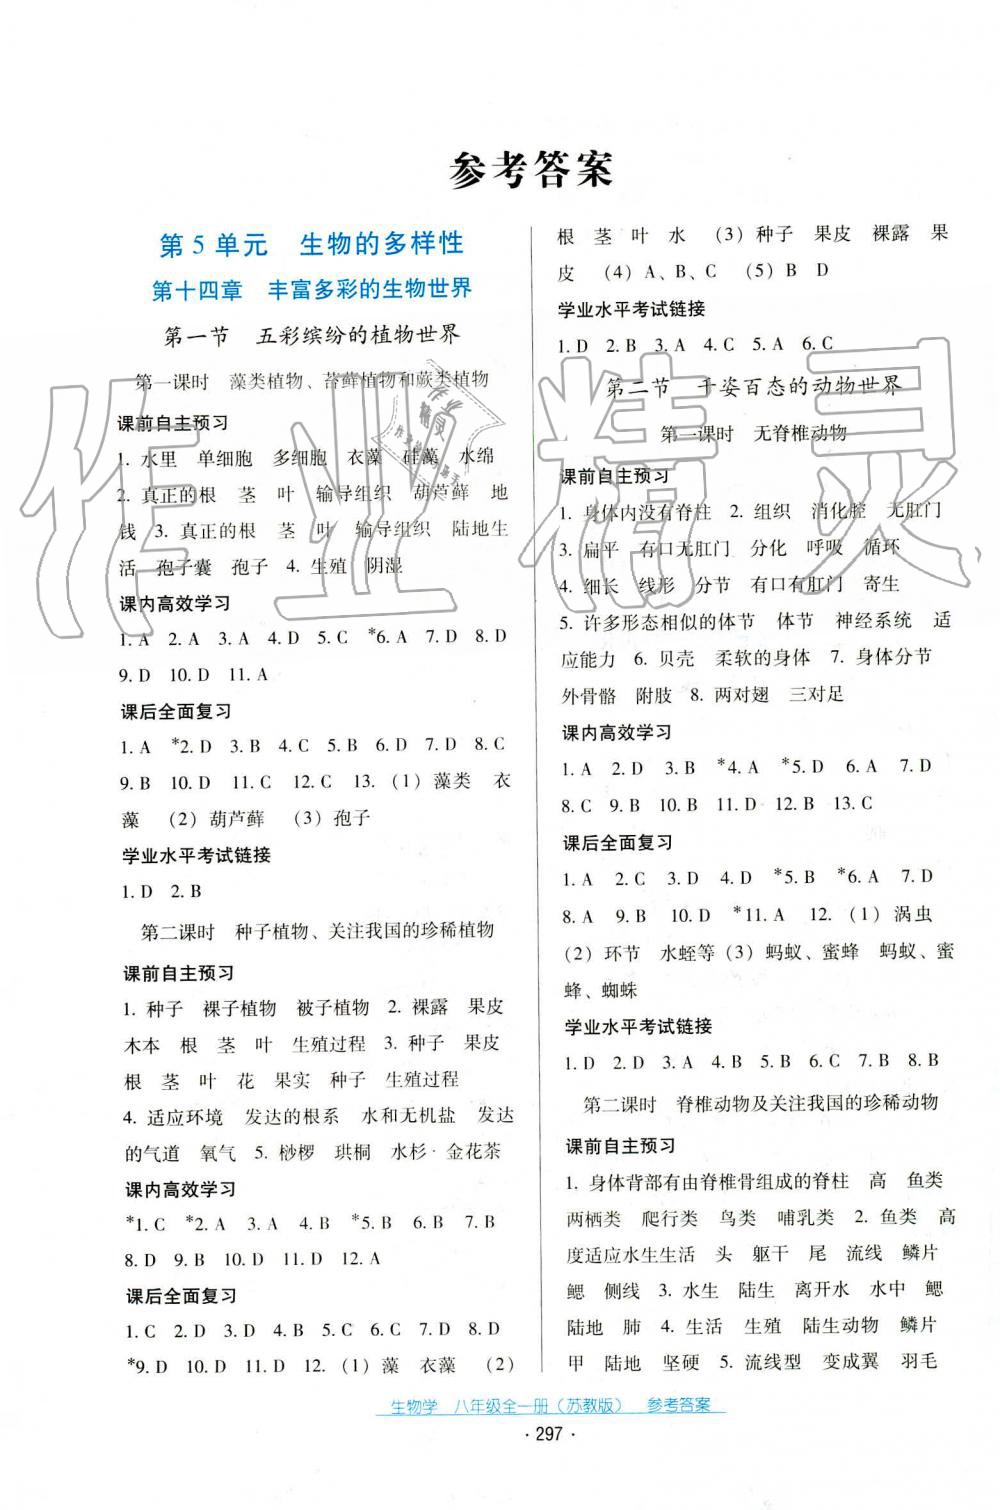 参考答案
第5单元 生物的多样性
第十四章 丰富多彩的生物世界
第一节 五彩缤纷的植物世界
第一课时 藻类植物、苔藓植物和蕨类植物
课前自主预习
1. 水里 单细胞 多细胞 衣藻 硅藻 水绵
2. 真正的根 茎 叶 输导组织 葫芦藓 地
钱 3. 真正的根 茎 叶 输导组织 陆地生
活 孢子囊 孢子 4. 生殖 阴湿
课内高效学习
1. A 2. A 3. A 4. D 5. C *6. A 7. D 8. D
9. D 10. D 11. A
课后全面复习
1. A *2. D 3. B 4. C 5. B 6. D 7. D 8. C
9. B 10. D 11. C 12. C 13. (1) 藻类 衣
藻 (2) 葫芦藓 (3) 孢子
学业水平考试链接
1. D 2. B
第二课时 种子植物、关注我国的珍稀植物
课前自主预习
1. 种子 裸子植物 被子植物 2. 裸露 果皮
木本 根 茎 叶 生殖过程 3. 种子 果皮
根 茎 叶 花 果实 种子 生殖过程
4. 适应环境 发达的根系 水和无机盐 发达
的气道 氧气 5. 桫椤 珙桐 水杉·金花茶
课内高效学习
*1. C *2. A 3. A 4. B *5. B 6. B 7. B
8. D 9. B 10. D 11. D 12. A
课后全面复习
1. C 2. D 3. D 4. C 5. B 6. C 7. D 8. D
*9. D 10. D 11. D 12. (1) 藻 衣藻 (2)
根 茎 叶 水 (3) 种子 果皮 裸露 果
皮 (4) A、B、C (5) B、D
学业水平考试链接
1. D 2. B 3. A 4. C 5. A 6. C
第二节 千姿百态的动物世界
第一课时 无脊椎动物
课前自主预习
1. 身体内没有脊柱 2. 组织 消化腔 无肛门
3. 扁平 有口无肛门 分化 呼吸 循环
4. 细长 线形 分节 有口有肛门 寄生
5. 许多形态相似的体节 体节 神经系统 适
应能力 6. 贝壳 柔软的身体 7. 身体分节
外骨骼 附肢 8. 两对翅 三对足
课内高效学习
1. A 2. D 3. B *4. A *5. D 6. A 7. D
8. C 9. B 10. B 11. D 12. B 13. C
课后全面复习
1. A 2. C 3. D 4. D *5. B *6. A 7. D
8. A 9. B 10. D *11. A 12. (1) 涡虫
(2) 环节 水蛭等 (3) 蚂蚁、蜜蜂 蚂蚁、蜜
蜂、蜘蛛
学业水平考试链接
1. D 2. D 3. A 4. B 5. B 6. C 7. B 8. B
第二课时 脊椎动物及关注我国的珍稀动物
课前自主预习
1. 身体背部有由脊椎骨组成的脊柱 高 鱼类
两栖类 爬行类 鸟类 哺乳类 2. 鱼类 高
度适应水生生活 头 躯干 尾 流线 鳞片
鳃 侧线 3. 水生 陆生 离开水 水中 鳃
陆地 肺 4. 生活 生殖 陆生动物 鳞片
甲 陆地 坚硬 5. 流线型 变成翼 羽毛
生物学 八年级全一册（苏教版） 参考答案
· 297 ·
作业精灵